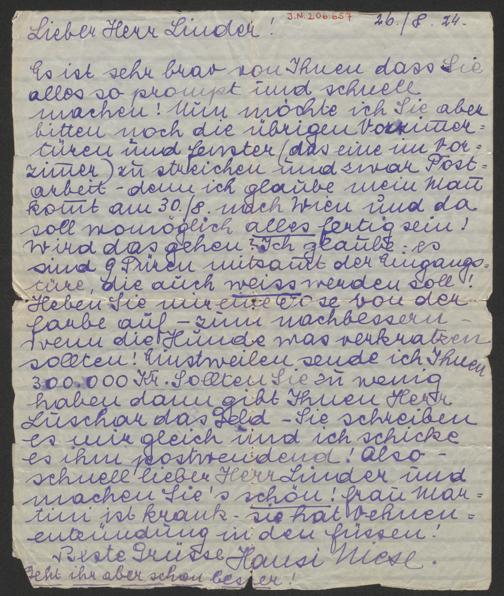 J.N. 206.657
26./8. 24.
Lieber Herr Linder!
Es ist sehr brav von Ihnen dass Sie
alles so prompt und schnell
machen! Nun möchte ich Sie aber
bitten noch die übrigen Vorzimer-
türen und Fenster (das eine im Vor-
zimer) zu streichen und zwar Post-
arbeit - denn ich glaube mein Mann
komt am 30./8. nach Wien und da
soll womöglich alles fertig sein!
Wird das gehen? Ich glaube es
sind 9 Türen mitsamt der Eingangs-
türe, die auch weiss werden soll!
Heben Sie mir eine Dose von der
Farbe auf - zum nachbessern -
wenn die Hunde was verkratzen
sollten! Einstweilen sende ich Ihnen
300.000 Kr. Sollten Sie zu wenig
haben dann gibt Ihnen Herr
Luschar das Geld - Sie schreiben
es mir gleich und ich schicke
es ihm postwendend! Also -
schnell lieber Herr Linder und
machen Sie's schön! Frau Mar-
tini ist krank - sie hat Vehnen-
entzündung in den Füssen!
Beste Grüsse Hansi Niese.
Geht ihr aber schon besser!